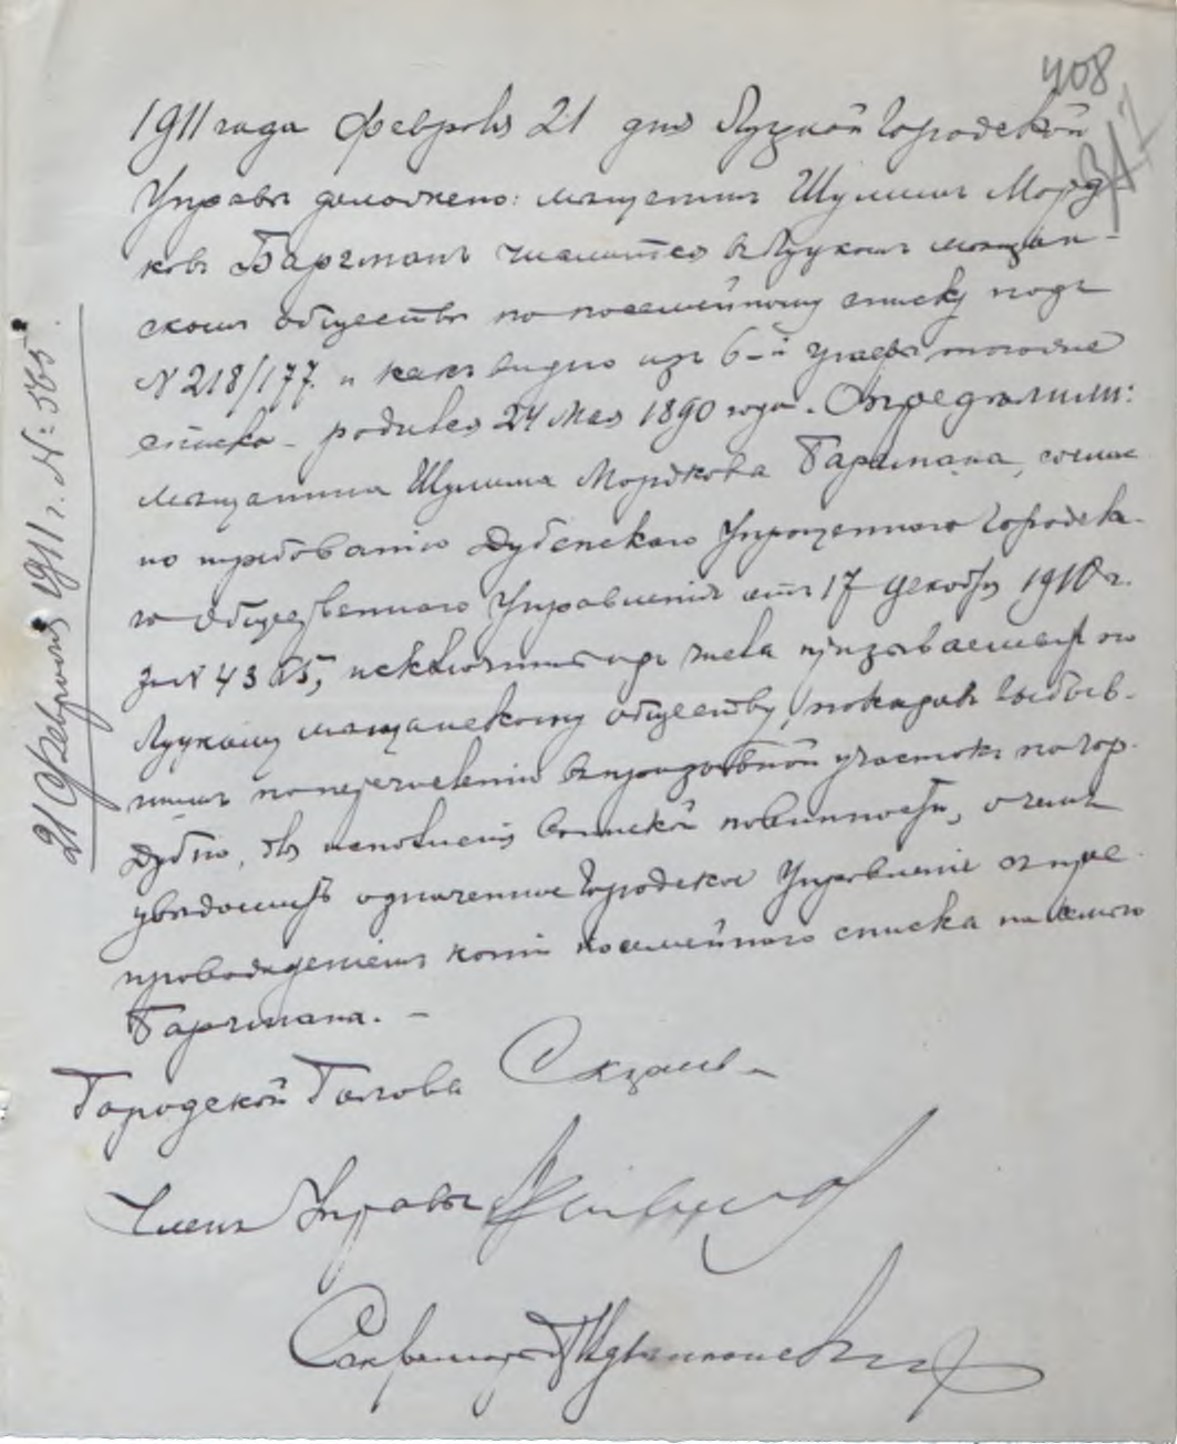 408
317
1911 года Февраля 21 дня Луцкой Городской
Управе доложено: мещанин Шулим Морд
ков Баргман числится в Луцком мещан-
ском обществе по посемейному списку под
N 218/177. и как видно из 6-й графы того же
списка - родился 24 Мая 1890 года. Определили:
мещанина Шулима Мордкова Баргмана, соглас
но требованию Дубенского Упрощенного Городска-
го Общественного Управления от 17 Декабря 1910 г.
за N 4365, исключить из числа призываемых по
Луцкому мещанскому обществу, показав выбыв-
шим по перечислению в призывной участок по гор.
Дубно, для исполнения воинской повинности, о чем
уведомить означенное Городское Управление с пре
провождением копии посемейного списка на семью
Баргмана. -
Городской Голова
Член Управы
Секретарь
21 Февраля 1911 г. N: 565